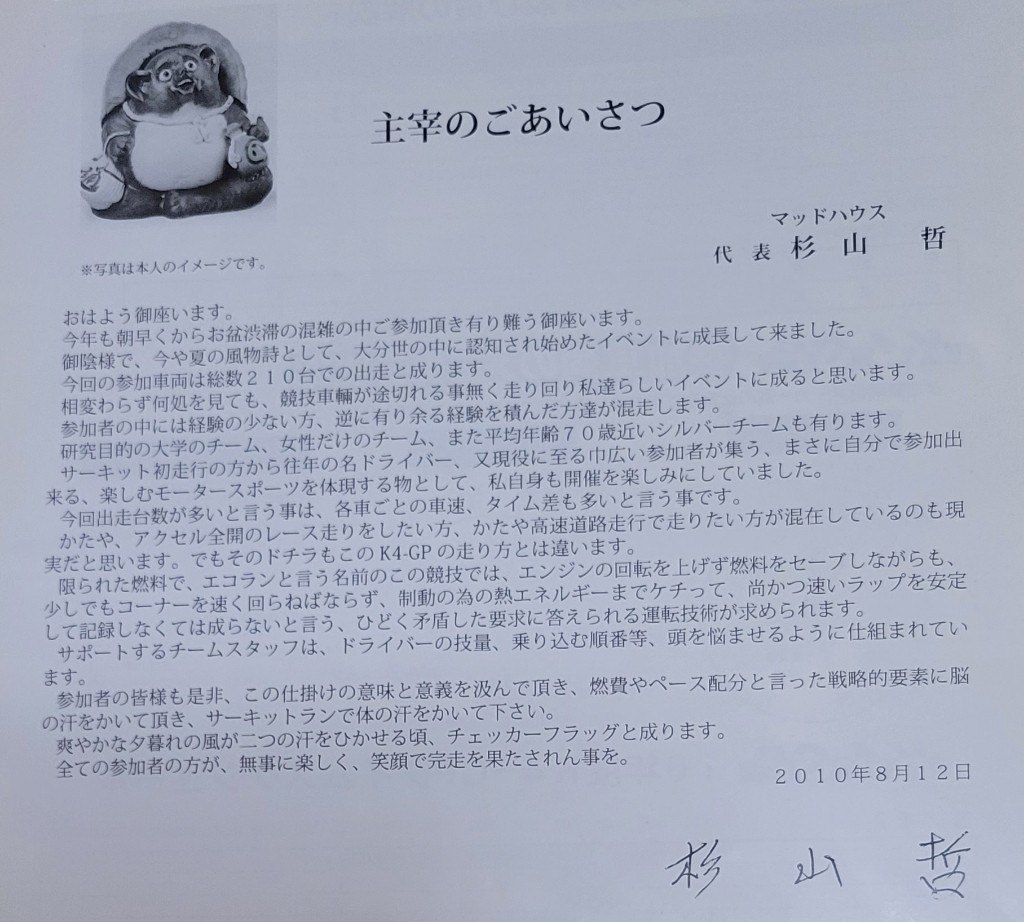 主宰のごあいさつ
マッドハウス
代 表 杉 山 哲
※写真は本人のイメージです。
おはよう御座います。
今年も朝早くからお盆渋滞の混雑の中ご参加頂き有り難う御座います。
御陰様で、今や夏の風物詩として、大分世の中に認知され始めたイベントに成長して来ました。
今回の参加車両は総数２１０台での出走と成ります。
相変わらず何処を見ても、競技車輌が途切れる事無く走り回り私達らしいイベントに成ると思います。
参加者の中には経験の少ない方、逆に有り余る経験を積んだ方達が混走します。
研究目的の大学のチーム、女性だけのチーム、また平均年齢７０歳近いシルバーチームも有ります。
サーキット初走行の方から往年の名ドライバー、又現役に至る巾広い参加者が集う、まさに自分で参加出
来る、楽しむモータースポーツを体現する物として、私自身も開催を楽しみにしていました。
今回出走台数が多いと言う事は、各車ごとの車速、タイム差も多いと言う事です。
かたや、アクセル全開のレース走りをしたい方、かたや高速道路走行で走りたい方が混在しているのも現
実だと思います。でもそのドチラもこの K4-GP の走り方とは違います。
限られた燃料で、エコランと言う名前のこの競技では、エンジンの回転を上げず燃料をセーブしながらも、
少しでもコーナーを速く回らねばならず、制動の為の熱エネルギーまでケチって、尚かつ速いラップを安定
して記録しなくては成らないと言う、ひどく矛盾した要求に答えられる運転技術が求められます。
サポートするチームスタッフは、ドライバーの技量、乗り込む順番等、頭を悩ませるように仕組まれてい
ます。
参加者の皆様も是非、この仕掛けの意味と意義を汲んで頂き、燃費やペース配分と言った戦略的要素に脳
の汗をかいて頂き、サーキットランで体の汗をかいて下さい。
爽やかな夕暮れの風が二つの汗をひかせる頃、チェッカーフラッグと成ります。
全ての参加者の方が、無事に楽しく、笑顔で完走を果たされん事を。
２０１０年８月１２日
杉 山 哲